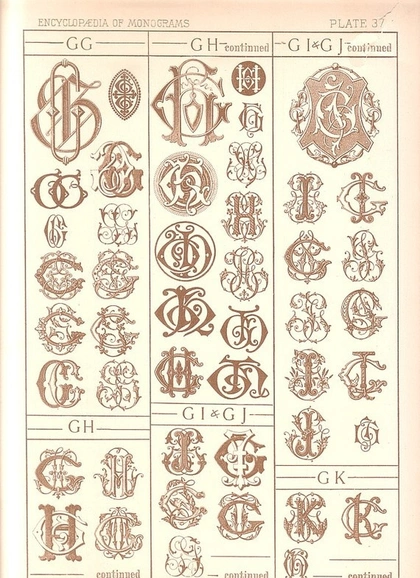 ENCYCLOPÆDIA OF MONOGRAMS
PLATE 37
GG
GH continued
GI & GJ continued
GH
GI & GJ
GK
continued
continued
continued